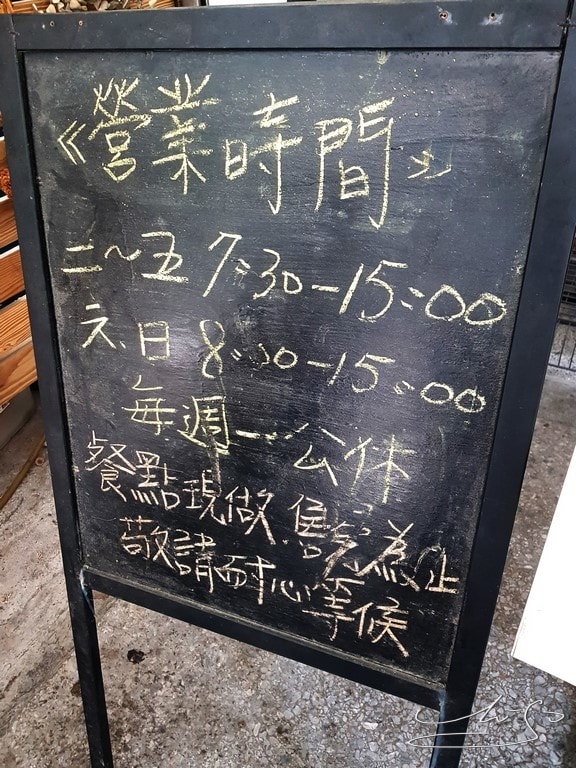 《營業時間》
二~五 7:30-15:00
六.日 8:00-15:00
每週一公休
餐點現做.售完為止
敬請耐心等候